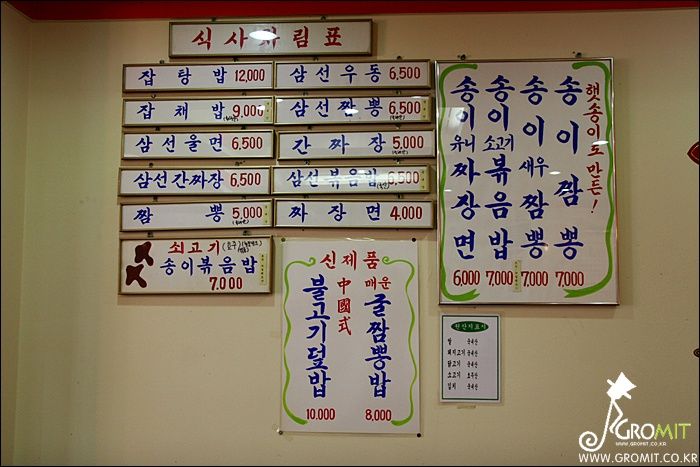 식사차림표
잡탕밥 12,000
삼선우동 6,500
잡채밥 9,000
삼선짬뽕 6,500
삼선울면 6,500
간짜장 5,000
삼선간짜장 6,500
삼선볶음밥 6,500
짬뽕 5,000
짜장면 4,000
쇠고기
송이볶음밥
7.000
신제품
中國式
불고기덮밥
10.000
매운
굴짬뽕밥
8.000
햇송이로 만든!
송이유니짜장면
6,000
송이소고기볶음밥
7,000
송이새우짬뽕
7,000
송이짬뽕
7,000
원산지표시
쌀 국내산
돼지고기 국내산
닭고기 국내산
소고기 호주산
김치 국내산
GROMIT
WWW.GROMIT.CO.KR
WWW.GROMIT.CO.KR